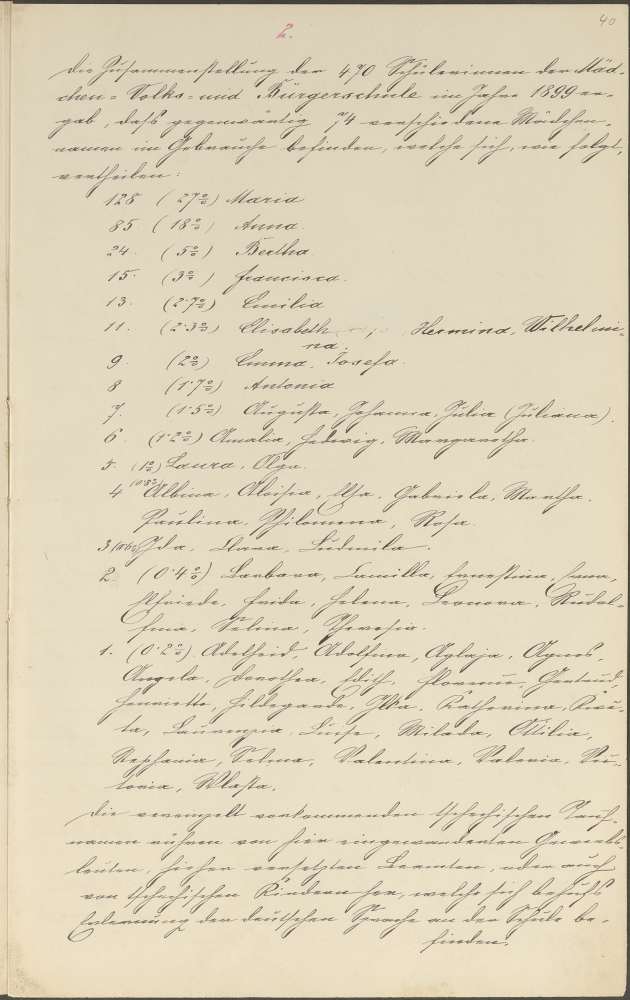 40
2.
Die Zusammenstellung der 470 Schülerinnen der Mäd-
chen- Volks- und Bürgerschule im Jahre 1899 er-
gab, daß gegenwärtig 74 verschiedene Mädchen-
namen im Gebrauche befinden, welche sich, wie folgt,
vertheilen:
128 (27%) Maria
85 (18%) Anna.
24. (5%) Bertha.
15. (3%) Francisca.
13. (2·7%) Emilia
11. (2·3%) Elisabeth, Hermina, Wilhelmi-
na.
9. (2%) Emma, Josefa.
8 (1·7%) Antonia
7. (1·5%) Augusta, Johanna, Julia (Juliana).
6. (1·2%) Amalia, Hedwig, Margaretha.
5. (1%) Laura, Olga.
4 (0·8%) Albina, Aloisia, Elsa, Gabriela, Martha,
Paulina, Philomena, Rosa.
3 Ida, Clara, Ludmila.
2. (0·4%) Barbara, Camilla, Ernestina, Erna,
Elfriede, Frida, Helena, Leonora, Rudol-
fina, Selina, Theresia.
1. (0·2%) Adelheid, Adolfine, Aglaja, Agnes,
Angela, Dorothea, Edith, Florence, Gertrud,
Henriette, Hildegarde, Ilka, Katherina,
ta, Laurenzia, Luise, Milada, Ottilia,
Stephania, Selma, Valentina, Valeria, Vic-
toria, Wlasta.
Die vereinzelt vorkommenden tschechischen Tauf-
namen rühren von hier eingewanderten Gewerbs-
leuten, hieher versetzten Beamten, oder auch
von tschechischen Kindern her, welche sich behufs
Erlernung der deutschen Sprache an der Schule be-
finden.